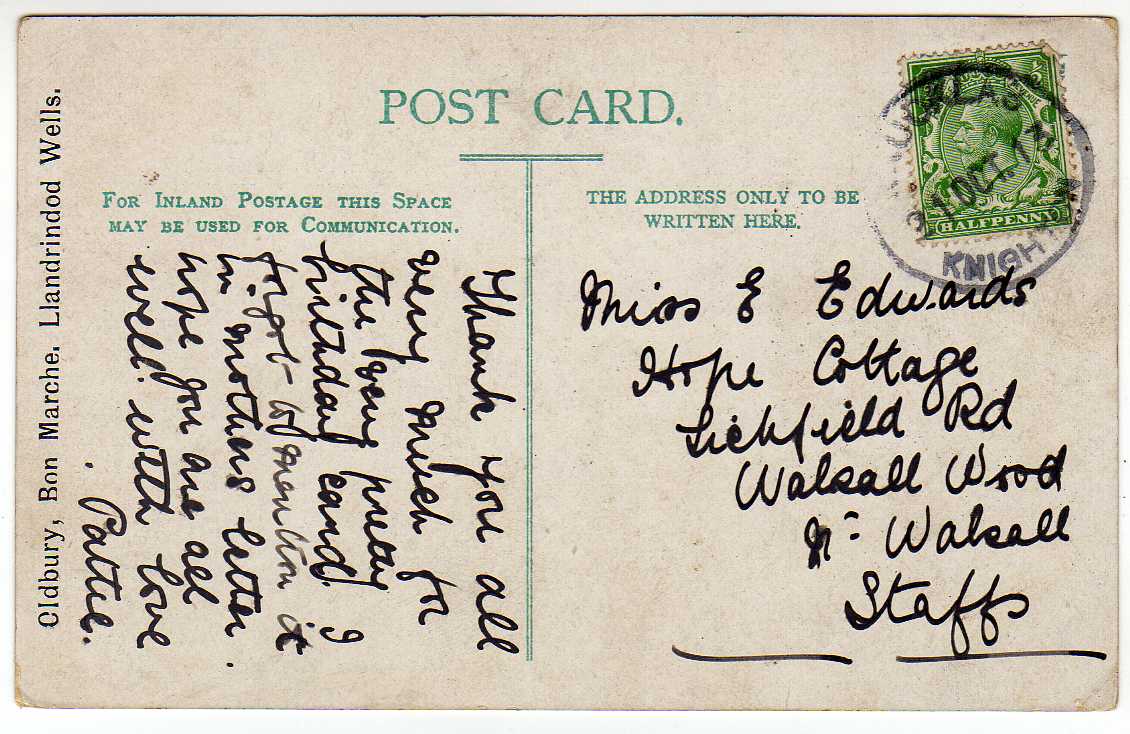 POST CARD.
FOR INLAND POSTAGE THIS SPACE
MAY BE USED FOR COMMUNICATION.
THE ADDRESS ONLY TO BE
WRITTEN HERE.
Oldbury, Bon Marche, Llandrindod Wells.
Thank you all
very much for
the very pretty
birthday card. I
forgot to mention it
in mothers letter.
hope you are all
well. with love
Pattie.
Miss E Edwards
Hope Cottage
Lichfield Rd
Walsall Wood
Nr Walsall
Staffs
HALFPENNY
OCT
KNIGH